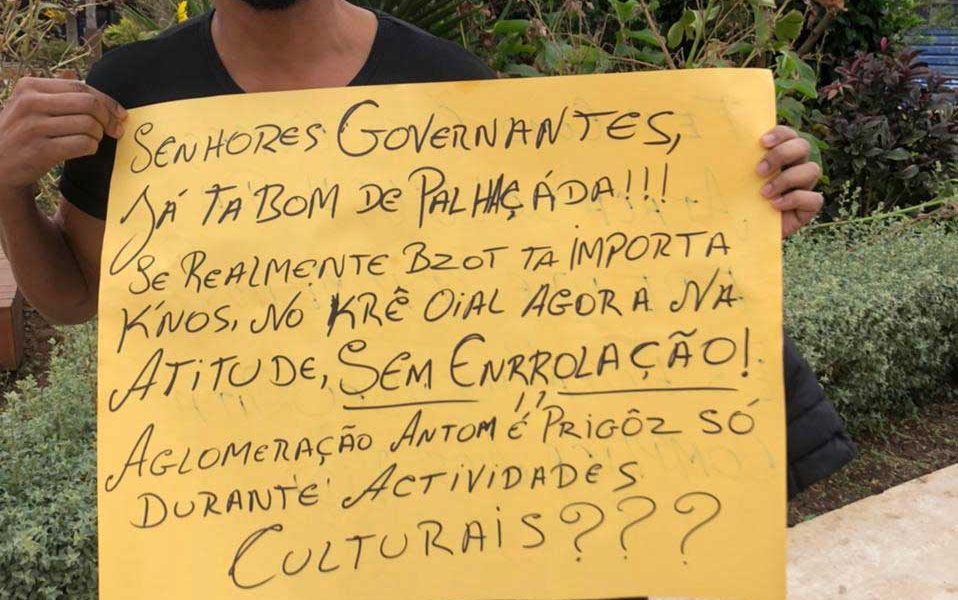 SENHORES GOVERNANTES,
JÁ TA BOM DE PALHAÇÁDA!!!
SE REALMENTE BZOT TA IMPORTA
K'NOS, NO KRÊ OIAL AGORA NA
ATITUDE, SEM ENRROLAÇÃO!
AGLOMERAÇÃO ANTOM É PRIGÔZ SÓ
DURANTE ACTIVIDADES
CULTURAIS???